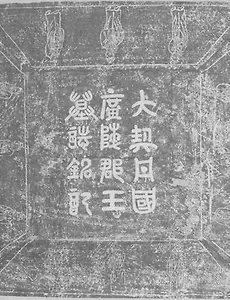 大契丹國
廣陵郡王
墓誌銘記